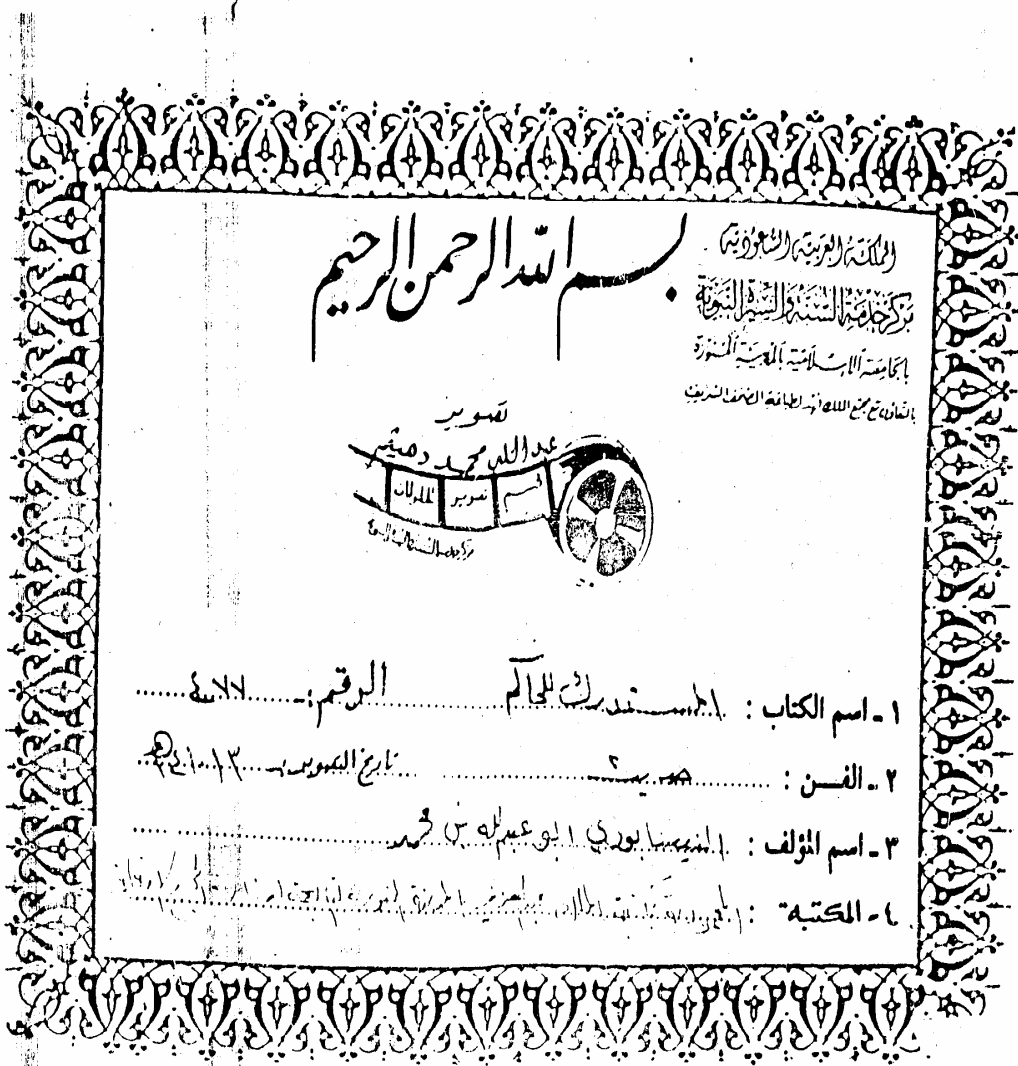 بسم الله الرحمن الرحيم
المملكة العربية السعودية
مركز خدمة السنة والسيرة النبوية
بالجامعة الإسلامية بالمدينة المنورة
بالتعاون مع مجمع الملك فهد لطباعة المصحف الشريف
تصوير
عبد الله محمد دهيثم
قسم تصوير
١ - اسم الكتاب : المستدرك للحاكم الرقم :
٢ - الفن : حديث تاريخ التصوير :
٣ - اسم المؤلف : النيسابوري ابو عبدالله بن محمد
٤ - المكتبة :